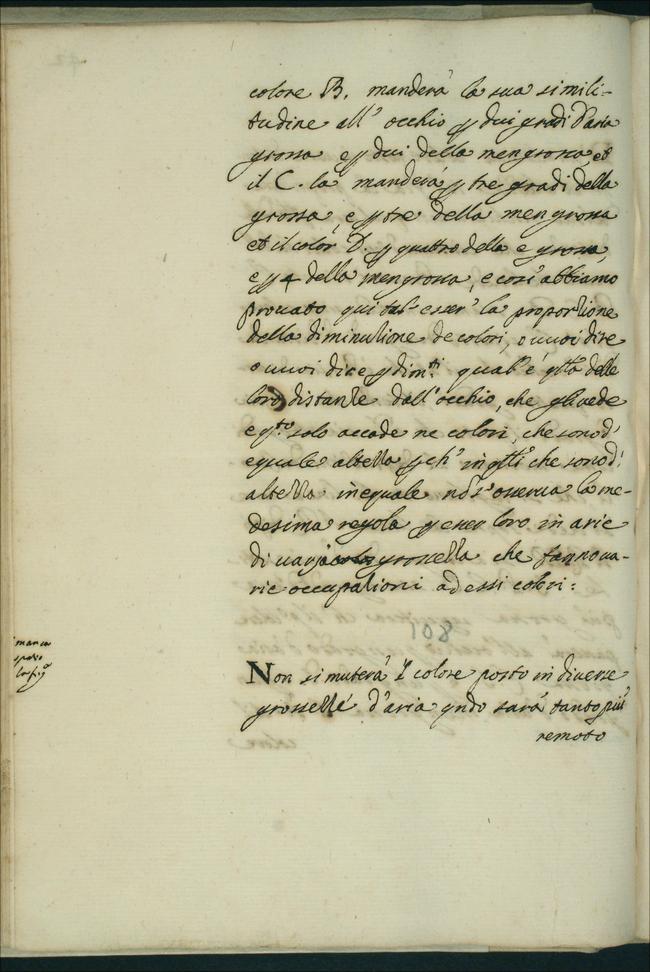 colore B. manderà la sua simili-
tudine all' occhio ꝑ dui gradi d'aria
grossa e ꝑ dui della mengrossa, et
il C. la manderà ꝑ tre gradi della
grossa, e ꝑ tre della mengrossa
et il color' D. ꝑ quattro della e grossa,
e ꝑ 4 della mengrossa, e così abbiamo
provato qui tal' esser' la proportione
della diminutione de colori, o vuoi dire
o vuoi dire ꝑdim.ti qual' é qlla delle
loro distanze dall' occhio, che gli vede
e q.to solo accade ne colori, che sono d'
equale altezza ꝑ ch' in qlli che sono d'
altezza inequale nō s'osserva la me-
desima regola ꝑ esser loro in arie
di varia grossezza che fanno va-
rie occupationi ad essi colori:
108
manca
Non si muterà 'l colore posto in diverse
grossezze d'aria qndo sarà tanto più
remoto